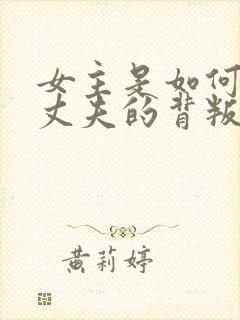 女主是如何
丈夫的背叛
黄莉婷